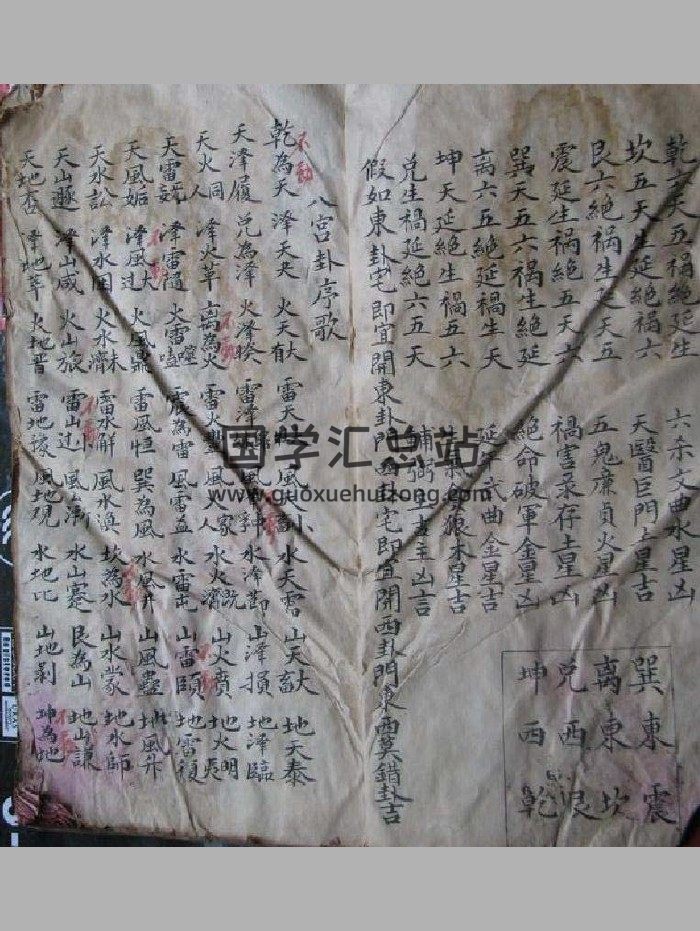 乾六天五禍絶延生
坎五天生延絶禍六
艮六絶禍生延天五
震延生禍絶五天六
巽天五六禍生絶延
离六五絶延禍生天
坤天延絶生禍五六
兌生禍延絶六五天
六杀文曲水星凶
天醫巨門土星吉
五鬼廉貞火星凶
禍害录存土星凶
絶命破軍金星凶
延年武曲金星吉
生氣貪狼木星吉
輔弼凶吉
巽東震
离東坎
兌西艮
坤西乾
假如東卦宅即宜開東卦門西卦宅即宜開西卦門東西莫錯卦吉
八宮卦序歌
乾為天 泽天夬 火天大有 雷天 風天小畜 水天需 山天大畜 地天泰
天泽履 兌為泽 火泽睽 雷泽 風泽 水泽節 山泽損 地泽臨
天火同人 泽火革 离為火 雷火豐 風火家人 水火既濟 山火賁 地火明夷
天雷 泽雷隨 火雷噬嗑 震為雷 風雷益 水雷屯 山雷頤 地雷復
天風姤 泽風大过 火風鼎 雷風恒 巽為風 水風井 山風蠱 地風升
天水訟 泽水困 火水未濟 雷水解 風水渙 坎為水 山水蒙 地水師
天山遯 泽山咸 火山旅 雷山小过 風山漸 水山蹇 艮為山 地山謙
天地否 泽地萃 火地晋 雷地豫 風地观 水地比 山地剥 坤為地
不動
国学汇总站
www.guoxuehuizong.com